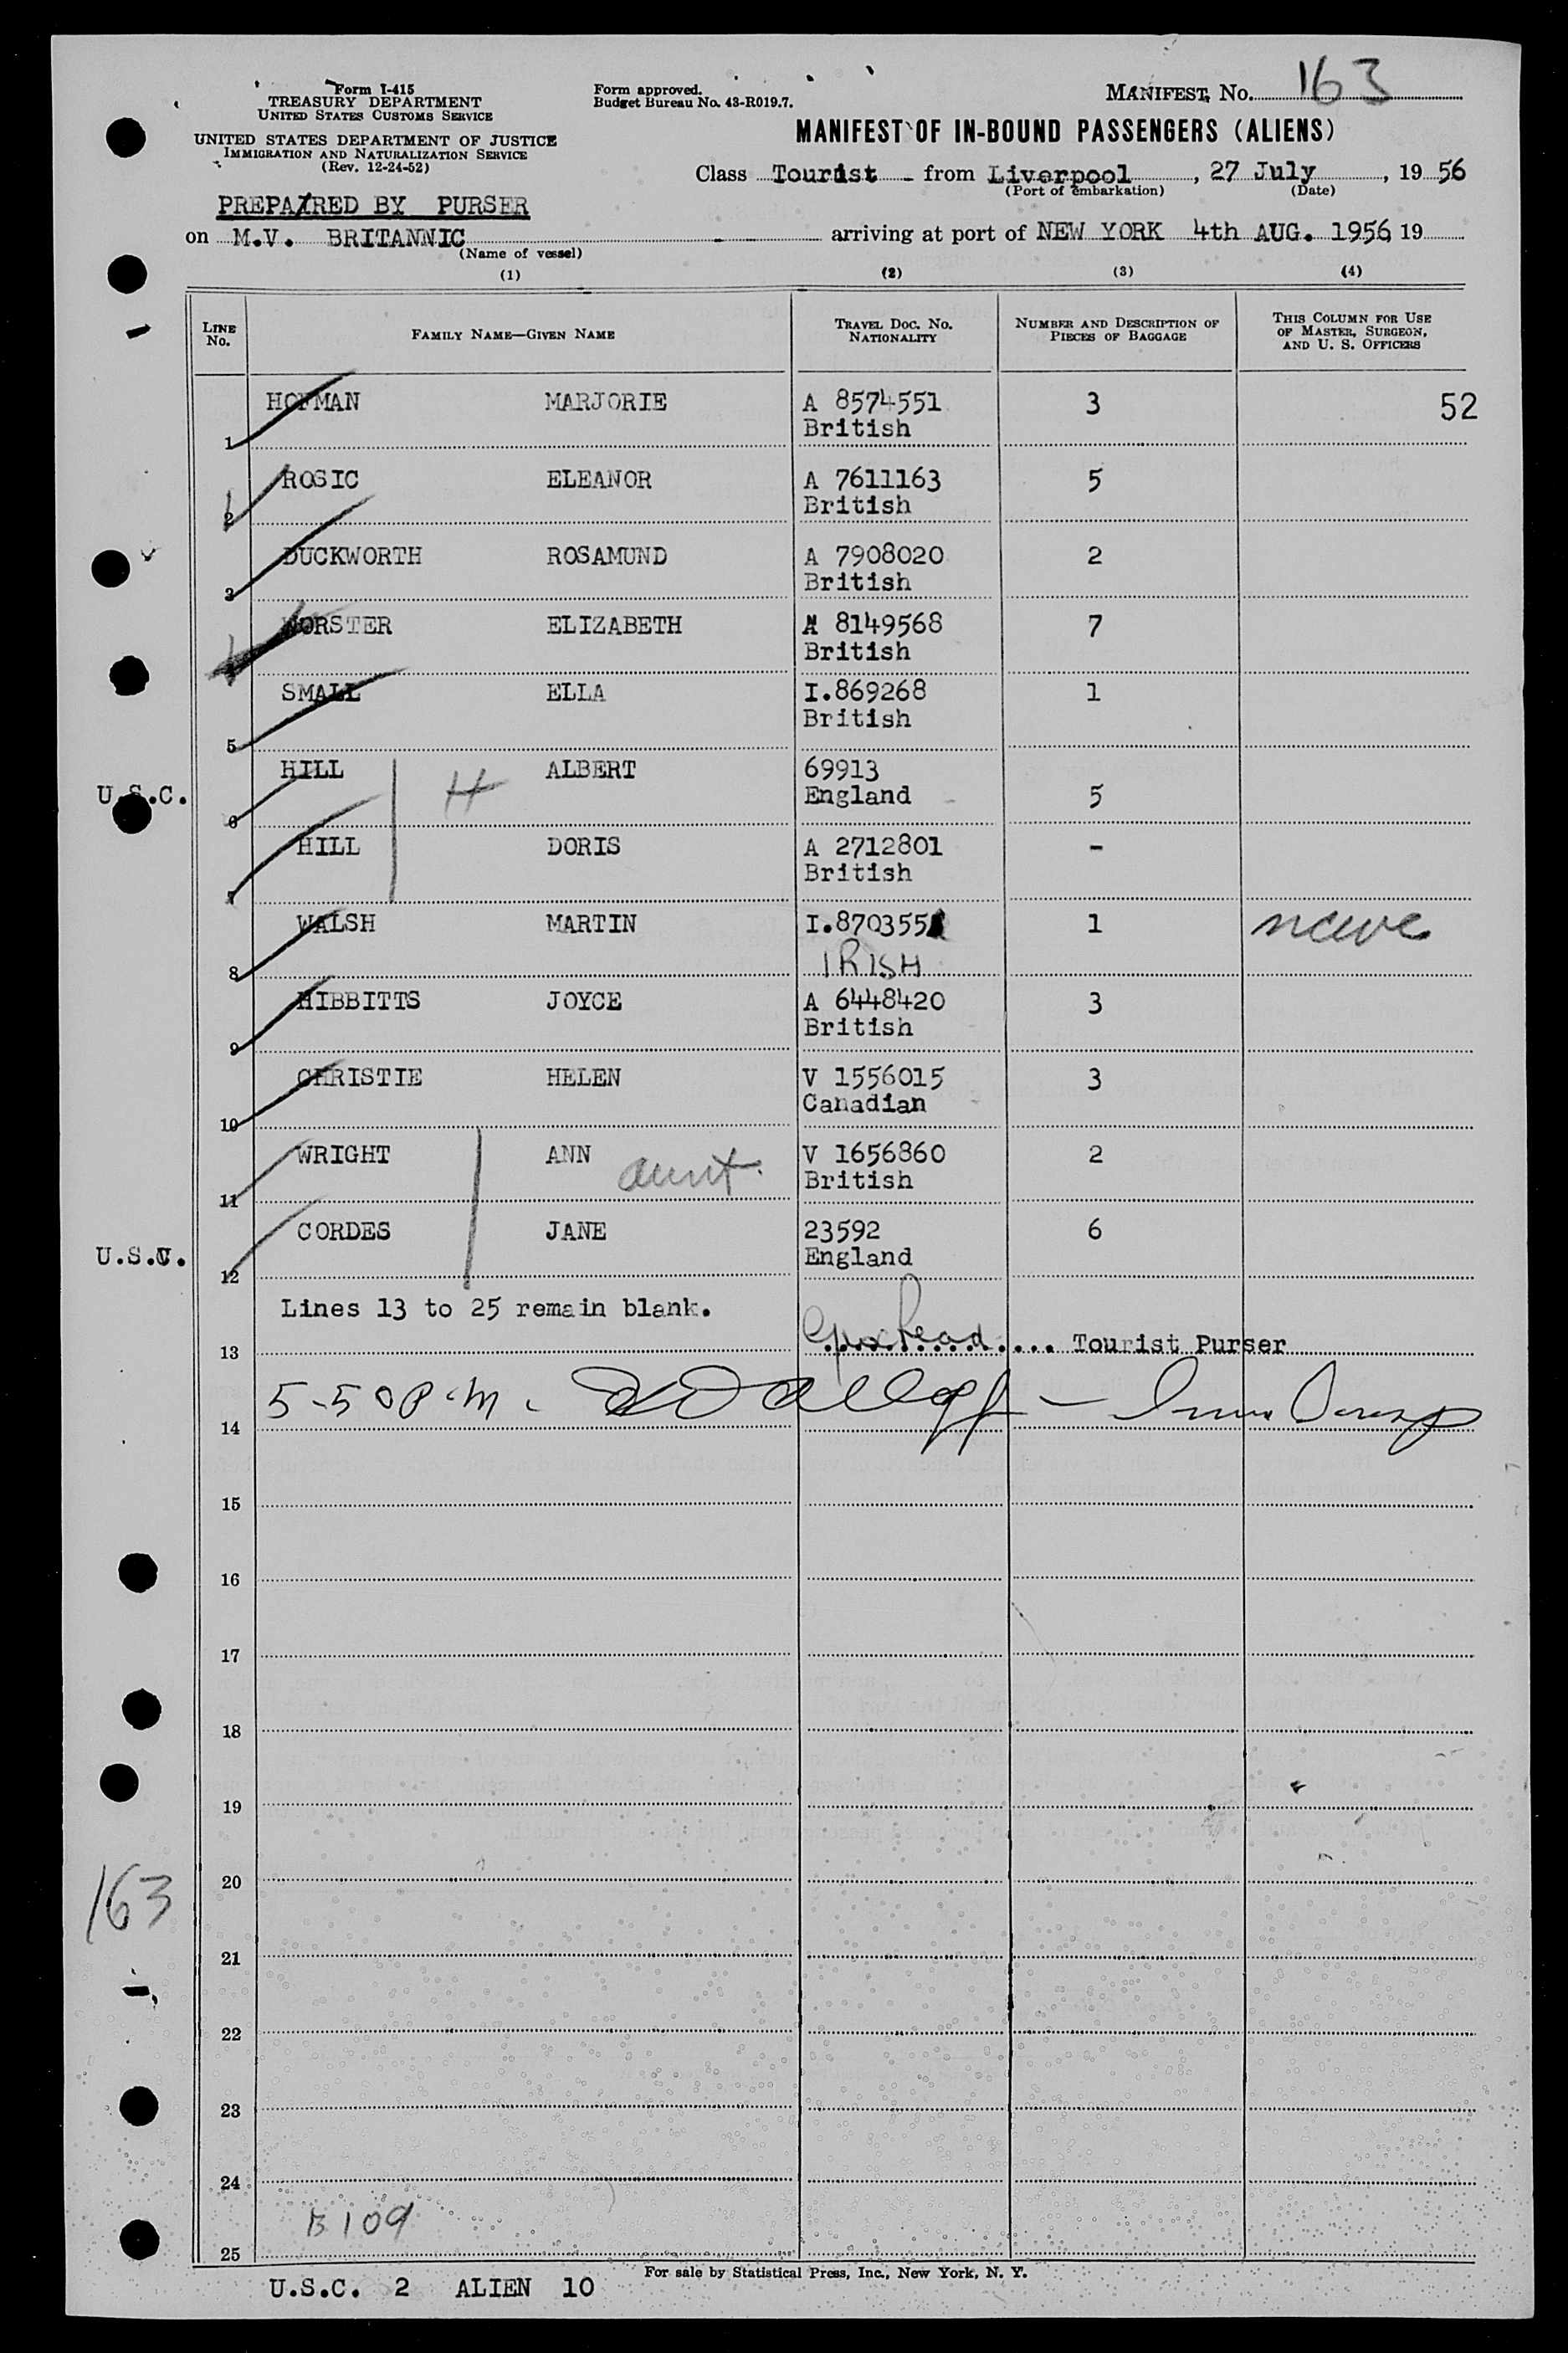 Form I-415
TREASURY DEPARTMENT
UNITED STATES CUSTOMS SERVICE
UNITED STATES DEPARTMENT OF JUSTICE
IMMIGRATION AND NATURALIZATION SERVICE
(Rev. 12-24-52)
Form approved.
Budget Bureau No. 43-R019.7.
MANIFEST No. 163
MANIFEST OF IN-BOUND PASSENGERS (ALIENS)
Class Tourist from Liverpool, 27 July, 19 56
(Port of embarkation) (Date)
PREPARED BY PURSER
on M.V. BRITANNIC arriving at port of NEW YORK 4th AUG. 1956, 19
(Name of vessel)
(1) (2) (3) (4)
LINE No. FAMILY NAME—GIVEN NAME TRAVEL DOC. NO. NATIONALITY NUMBER AND DESCRIPTION OF PIECES OF BAGGAGE THIS COLUMN FOR USE OF MASTER, SURGEON, AND U. S. OFFICERS
1 HOFMAN MARJORIE A 8574551 3 52
British
2 ROSIC ELEANOR A 7611163 5
British
3 DUCKWORTH ROSAMUND A 7908020 2
British
WORSTER ELIZABETH A 8149568 7
British
5 SMALL ELLA I.869268 1
British
U.S.C. 6 HILL H ALBERT 69913
England 5
7 HILL DORIS A 2712801 -
British
8 WALSH MARTIN I.870355 1
IRISH
9 HIBBITTS JOYCE A 6448420 3
British
10 CHRISTIE HELEN V 1556015 3
Canadian
11 WRIGHT ANN aunt. V 1656860 2
British
U.S.C. 12 CORDES JANE 23592 6
England
Lines 13 to 25 remain blank.
13 Tourist Purser
5-50 P.M.
14
15
16
17
18
19
20
163
21
22
23
24
B109
25
For sale by Statistical Press, Inc., New York, N. Y.
U.S.C. 2 ALIEN 10